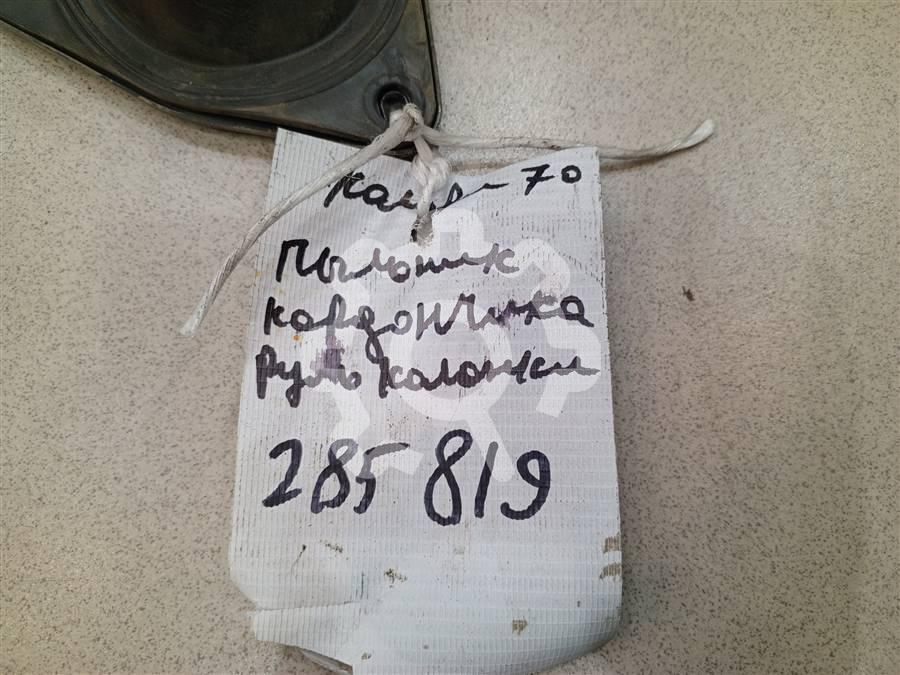 Камри-70
Пыльник
кардончика
руль колонки
285 819